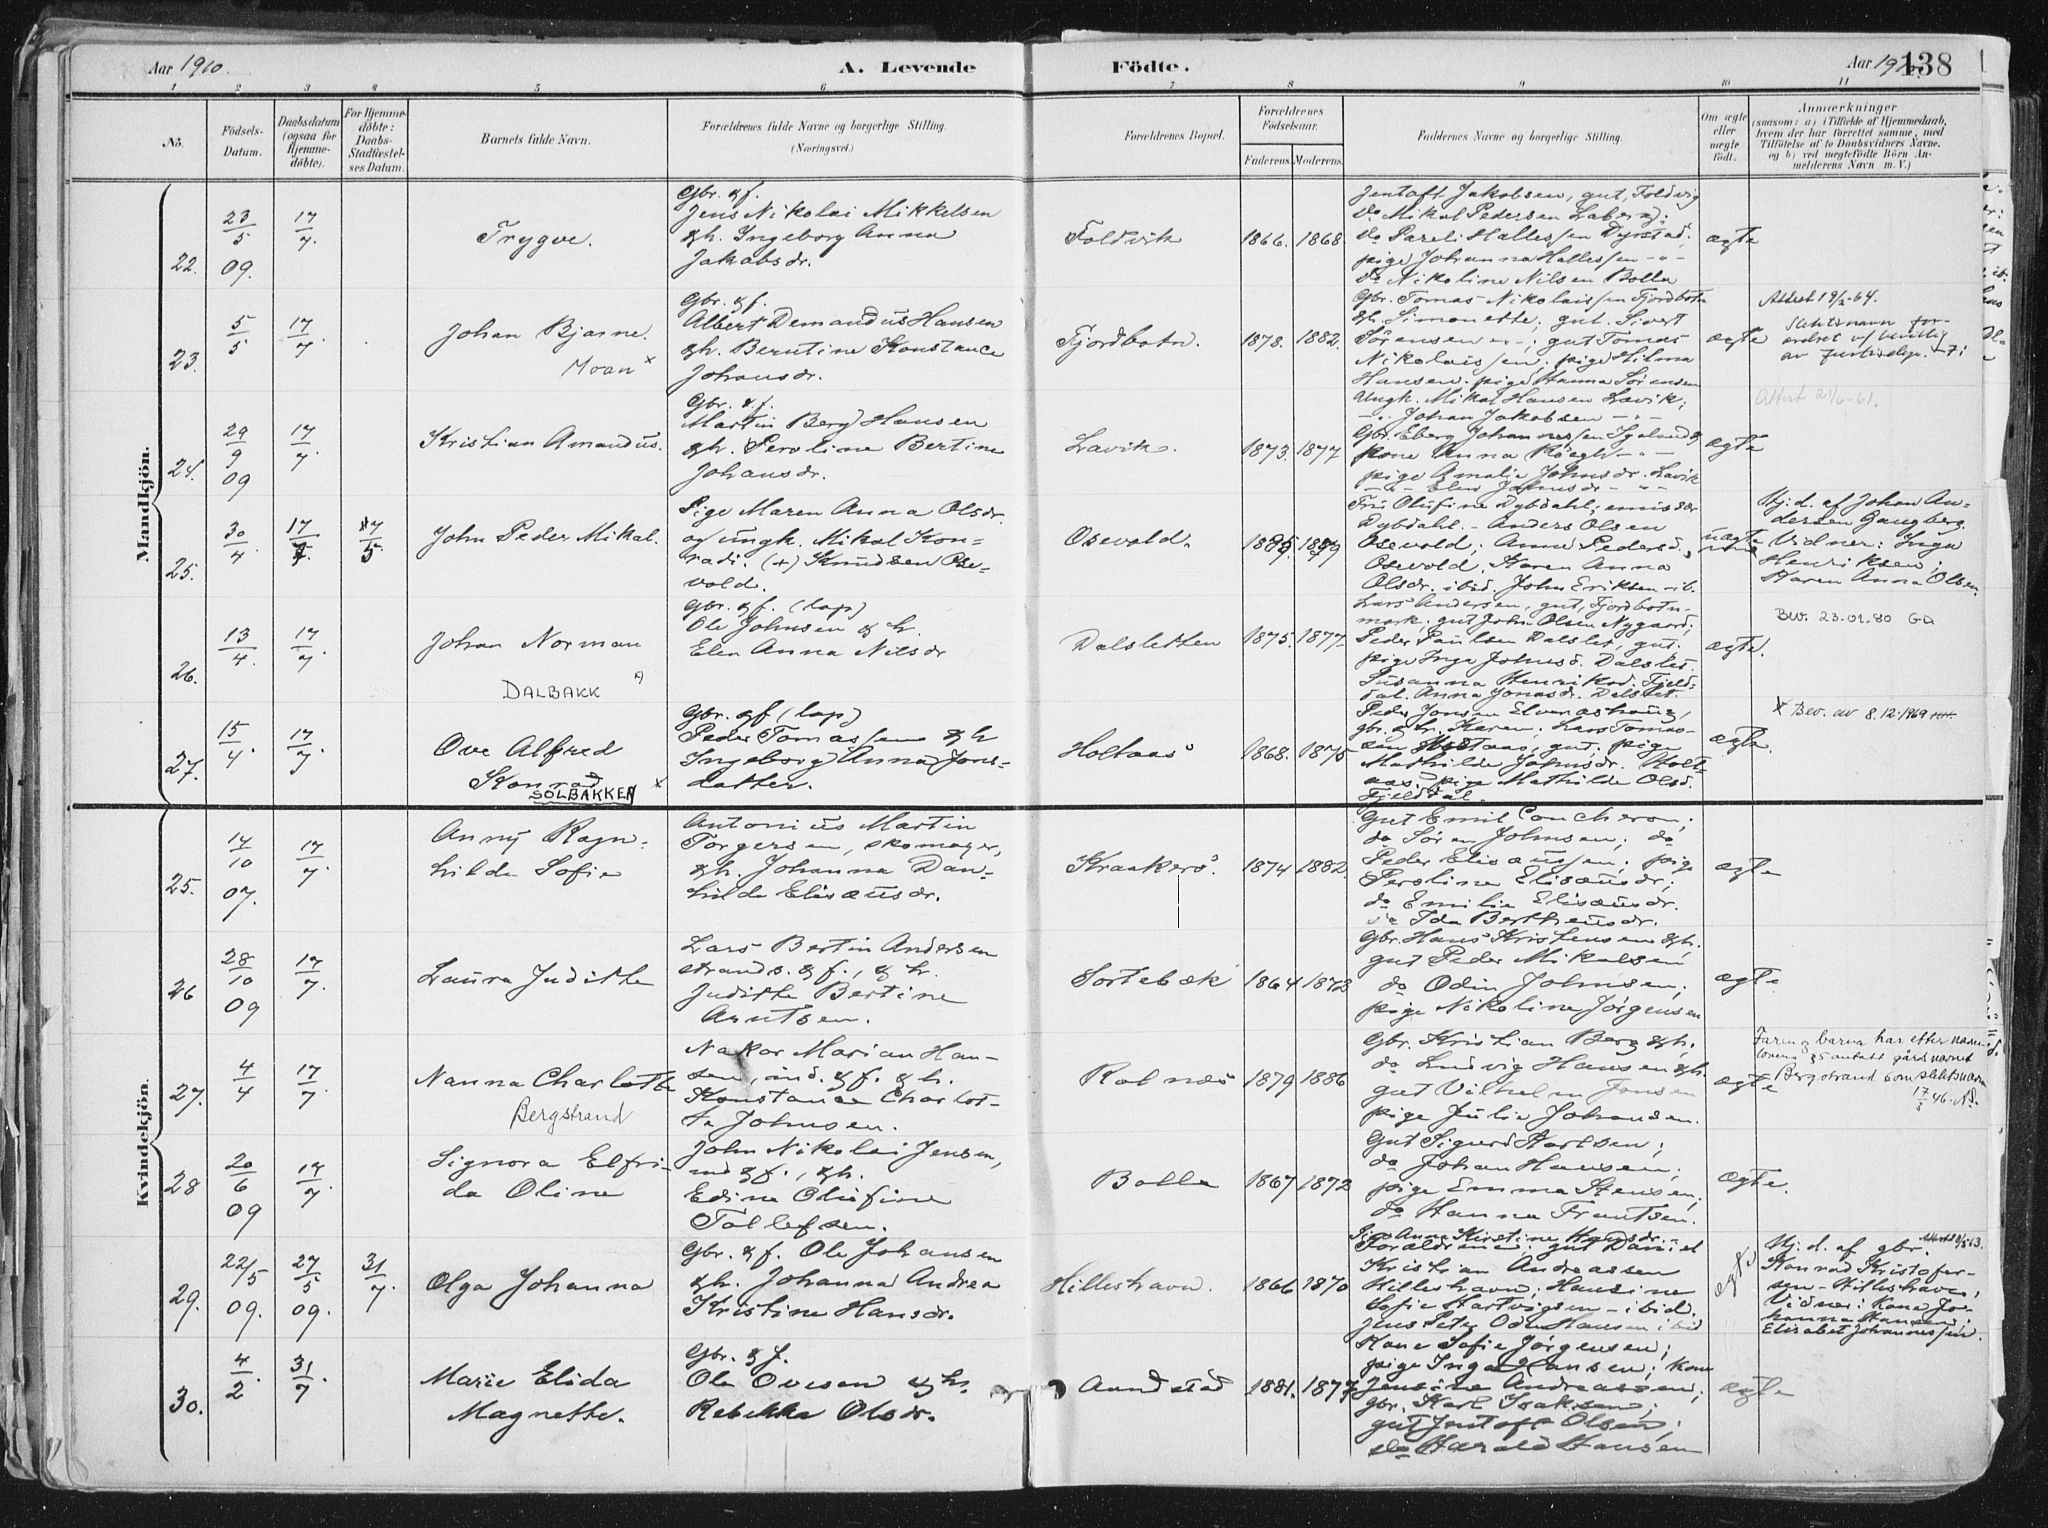 Aar 1910.
A. Levende
Födte.
Aar 1910
138
1 2 3 4 5 6 7 8 9 10 11
No.
Födsels-
Datum.
Daabsdatum
(ogsaa for
Hjemme-
döbte).
For Hjemme-
döbte:
Daabs-
Stadfæstel-
ses Datum.
Barnets fulde Navn.
Forældrenes fulde Navne og borgerlige Stilling.
(Næringsvei.)
Forældrenes Bopæl.
Forældrenes
Födselsaar.
Faderens.
Moderens.
Faddernes Navne og borgerlige Stilling.
Om ægte
eller
uægte
födt.
Anmærkninger
(saasom: a) i Tilfælde af Hjemmedaab,
hvem der har forrettet samme, med
Tilföielse af to Daabsvidners Navne,
og b) ved uægtefödte Börn An-
melderens Navn m. V.)
Mandkjön.
22.
23/5 09.
17/7.
Trygve.
Gbr. & f.
Jens Nikolai Mikkelsen
& h. Ingeborg Anna
Jakobsdr.
Foldvik
1866. 1868.
Jentoft Jakobsen, gut, Foldvig
do Mikal Pedersen Laberg;
do Pareli Hallessen Dyrstad;
pige Johanna Hallessen -"-
do Nikoline Nilsen Bolla
ægte
23.
5/5
17/7
Johan Bjarne.
Moan x
Gbr. & f.
Albert Demandus Hansen
& h. Berntine Konstance
Johansdr.
Fjordbotn.
1878. 1882.
Gbr. Tomas Nikolaissen Fjordbotn
& h. Simonette; gut. Sivert
Sörensen -"-; gut Tomas
Nikolaissen; pige Hilma
Hansen. pige Hanna Sörensen
ægte
Slektsnavn
24.
29/9 09
17/7
Kristian Amandus.
Gbr. & f.
Martin Berg Hansen
& h. Peroline Bertine
Johansdr.
Lavik.
1873. 1877
Ungk. Mikal Hansen Lavik;
-"- Johan Jakobsen -"-
Gbr. Eberg Johannessen
kone Anna
pige Amalie Johnsdr. Lavik
-"- Elen Johnsdr -"-
ægte
Attest 21/6-61.
25.
30/4
17/7.
7/5
John Peder Mikal.
Pige Maren Anna Olsdr.
og ungk. Mikal Kon-
radi. (+) Knudsen Ose-
vold.
Osevold.
Fru Olufine Dybdahl; emissær
Dybdahl. - Anders Olsen
Osevold; Anne Pedersd,
Osevold, Karen Anna
Olsdr. ibid. John Eriksen ib.
uægte
Hj. d. af Johan An-
dersen Gangberg.
Vidner: Inga
Henriksen;
Karen Anna Olsen
26.
13/4.
17/7
Johan Norman
DALBAKK
Gbr. & f. (lap)
Ole Johnsen & h.
Elen Anna Nilsdr
Dalsletten
1875. 1877-
Lars Andersen, gut, Fjordbotn-
mark; gut John Olsen Nygaard;
Peder Paulsen Dalslet, gut.
pige Inga Johnsd. Dalslet.
Susanna Henriksd. Fjeld-
dal. Anna Jonasdr. Dalslet.
ægte.
Bev. 23.01.80 GD
27.
15/4
17/7
Ove Alfred
Konrad x
SOLBAKKEN
Gbr. & f (lap)
Peder Tomassen & h
Ingeborg Anna Jons-
datter.
Holtaas
1868. 1875
Peder Jonsen Elvenæshaug,
gbr. & h. Karen; Lars Tomas-
sen Holtaas, gut; pige
Mathilde Johnsdr. Holt-
aas; pige Mathilde Olsd.
Fjelddal.
ægte.
x Bev. av 8.12.1969
Kvindekjön.
25.
14/10 07.
17/7.
Anny Ragn-
hilde Sofie
Antonius Martin
Torgersen, skomager,
& h. Johanna Dan-
hilde Elisæusdr.
Kraakerö.
1874 1882.
Gut Emil Concheron;
do Sören Johnsen; do
Peder Elisæussen; pige
Peroline Elisæusdr;
do Emilie Elisæusdr.
do Ida Bertheusdr.
ægte
26
28/10 09
17/7.
Laura Judithe
Lars Bertin Andersen
strands. & f., & h.
Judithe Bertine
Arntsen.
Sortebæk
1864 1873
Gbr. Hans Kristensen & h.
gut Peder Mikalsen
do Odin Johnsen;
pige Nikoline Jörgensen
ægte
27.
4/4
17/7
Nanna Charlotte
Bergstrand
Nakor Marian Han-
sen, ind. & f. & h.
Konstance Charlot-
te Johnsen.
Rolnæs
1879 1886
Gbr. Kristian Berg & h.
do Ludvig Hansen & h.
gut Vilhelm Jensen
pige Julie Johansen.
ægte
Faren og barna har efter navne-
lovens § 5 antatt gårdsnavnet
Bergstrand som slektsnavn
17/3 46.
28
20/6 09
17/7.
Signora Elfri-
da Oline
John Nikolai Jensen,
ind & f., & h.
Edine Olufine
Tollefsen.
Bolla
1867 1872
Gut Sigurd Karlsen;
do Johan Hansen;
pige Emma Stensen;
do Hanna Frantsen.
ægte.
29.
22/5 09.
27/5 09.
31/7
Olga Johanna
Gbr. & f. Ole Johansen
& h. Johanna Andrea
Kristine Hansdr.
Hilleshavn.
1866 1870
Pige Anna Kirstine Hansdr.-
Forældrene; gut Daniel
Kristian Andreassen
Hilleshavn; Hansine
Sofie Hartvigsen - ibid.
Jens Peter Odin Hansen ibid
ægte
Hj. d. af gbr.
Konrad Kristofer-
sen - Hilleshavn,
Vidner: Kone Jo-
hanna Hansen;
Elisabet Johannessen.
30.
4/2
31/7
Marie Elida
Magnette.
Gbr. & f.
Ole Ovesen & h.
Rebekka Olsdr.
Aandstad
1881. 1877
Kone Sofie Jörgensen;
pige Inga Hansen; kone
Jensine Andreassen;
gbr. Karl Isaksen;
gut Jentoft Olsen;
do Harald Hansen
ægte